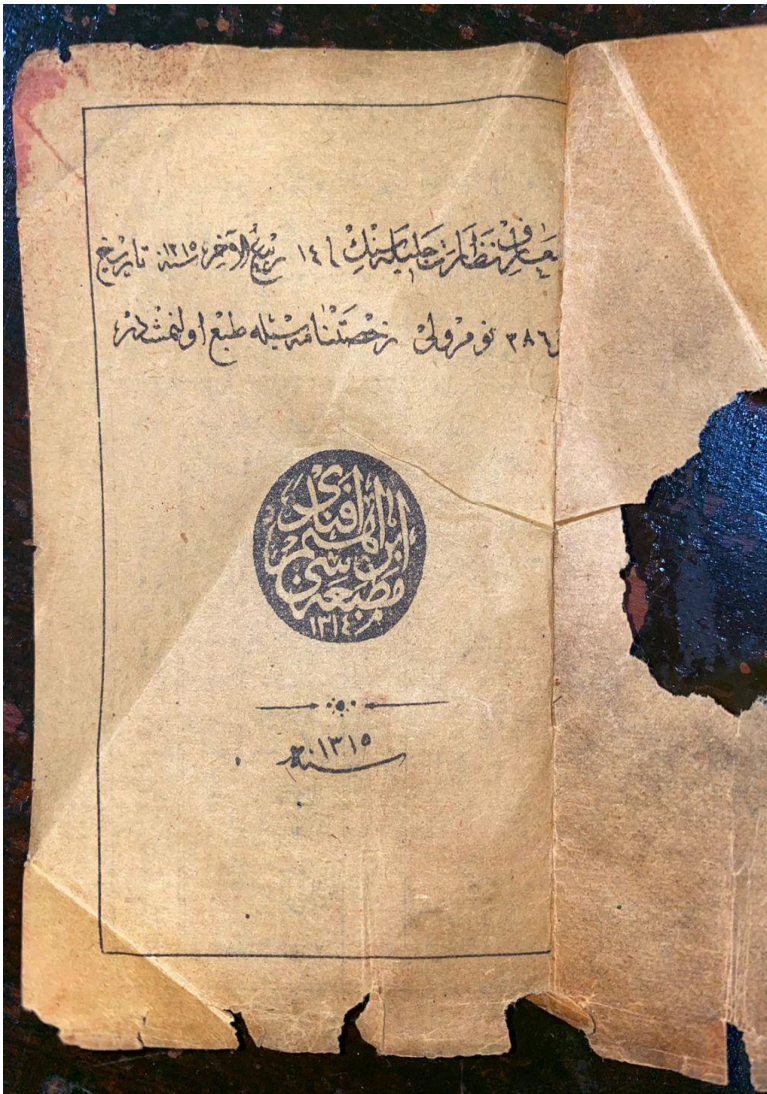 معارف نظارت جليله سنك ١٤ ربيع الآخر سنه ١٣١٥ تاريخ
٣٨٦ نومرولى رخصتنامه سيله طبع اولنمشدر
ابراهيم افندى
مطبعه سى
١٣١٤
سنه ١٣١٥